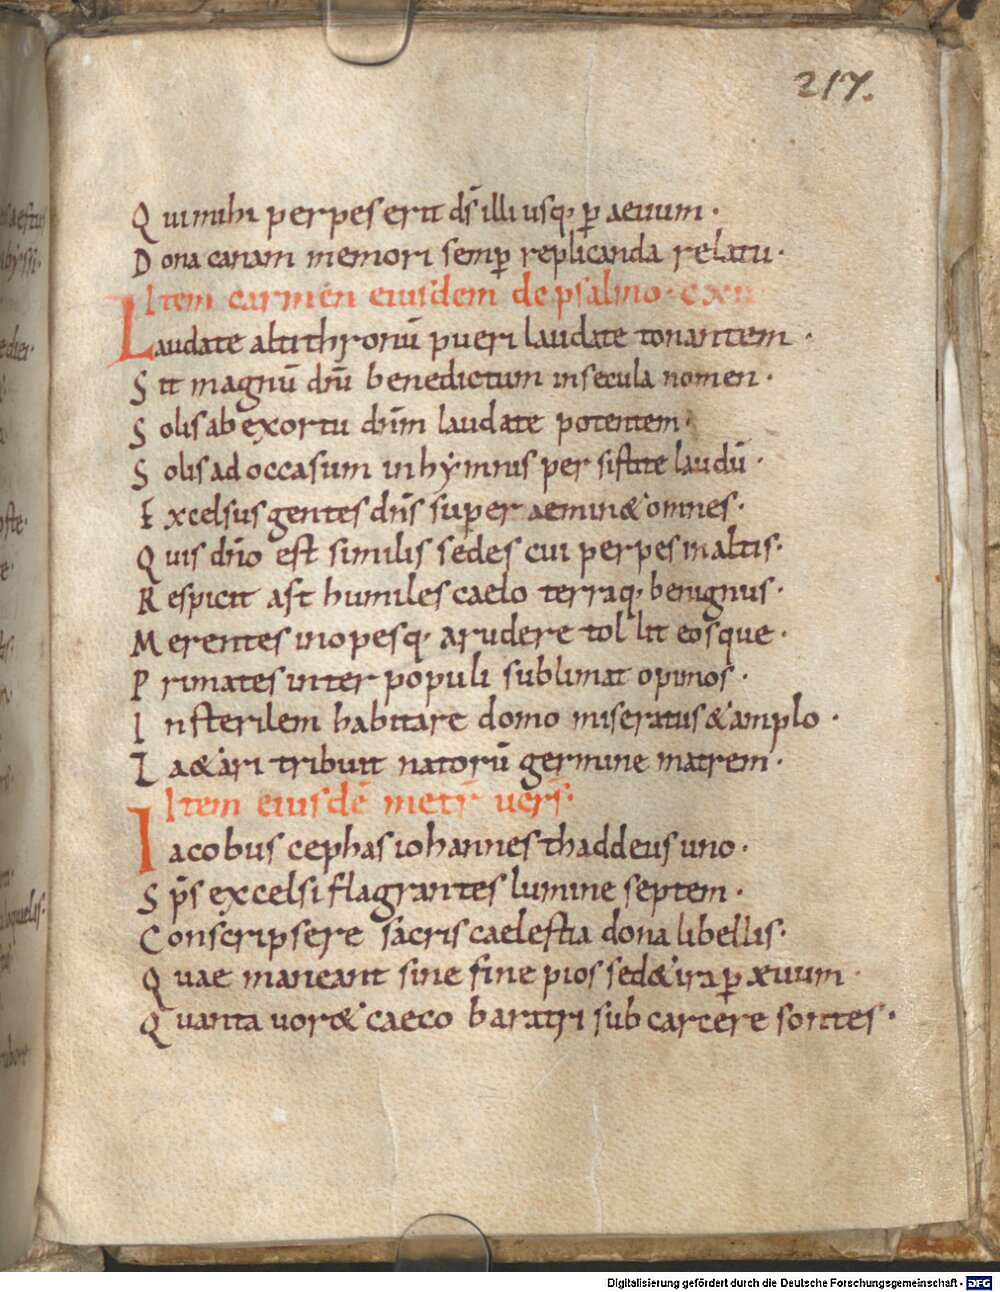 217.
Qui mihi perpes erit ds̄ illi usq; p̱ aeuum ·
Dona canam memori semp̱ replicanda relatu ·
Item carmen eiusdem de psalmo · cxii
Laudate altithronū pueri laudate tonantem ·
Sit magnū dnī benedictum in secula nomen ·
Solis ab exortu dnm̄ laudate potentem ·
Solis ad occasum in hẏmnis persistite laudū ·
Excelsus gentes dns̄ super aemin& omnes ·
Quis dnō est similis sedes cui perpes in altis ·
Respicit ast humiles caelo terraq; benignus ·
Merentes inopesq; a rudere tollit eosque ·
Primates inter populi sublimat opimos ·
In sterilem habitare domo miseratus & amplo ·
La&ari tribuit natorū germine matrem ·
Item eiusdē metr̄ uers̄ ·
Iacobus cephas iohannes thaddeus uno ·
Sps̄ excelsi flagrantes lumine septem ·
Conscripsere sacris caelestia dona libellis ·
Quae maneant sine fine pios sed & ira p̱ aeuum ·
Quanta uor& caeco baratri sub carcere sontes ·
Digitalisierung gefördert durch die Deutsche Forschungsgemeinschaft - DFG